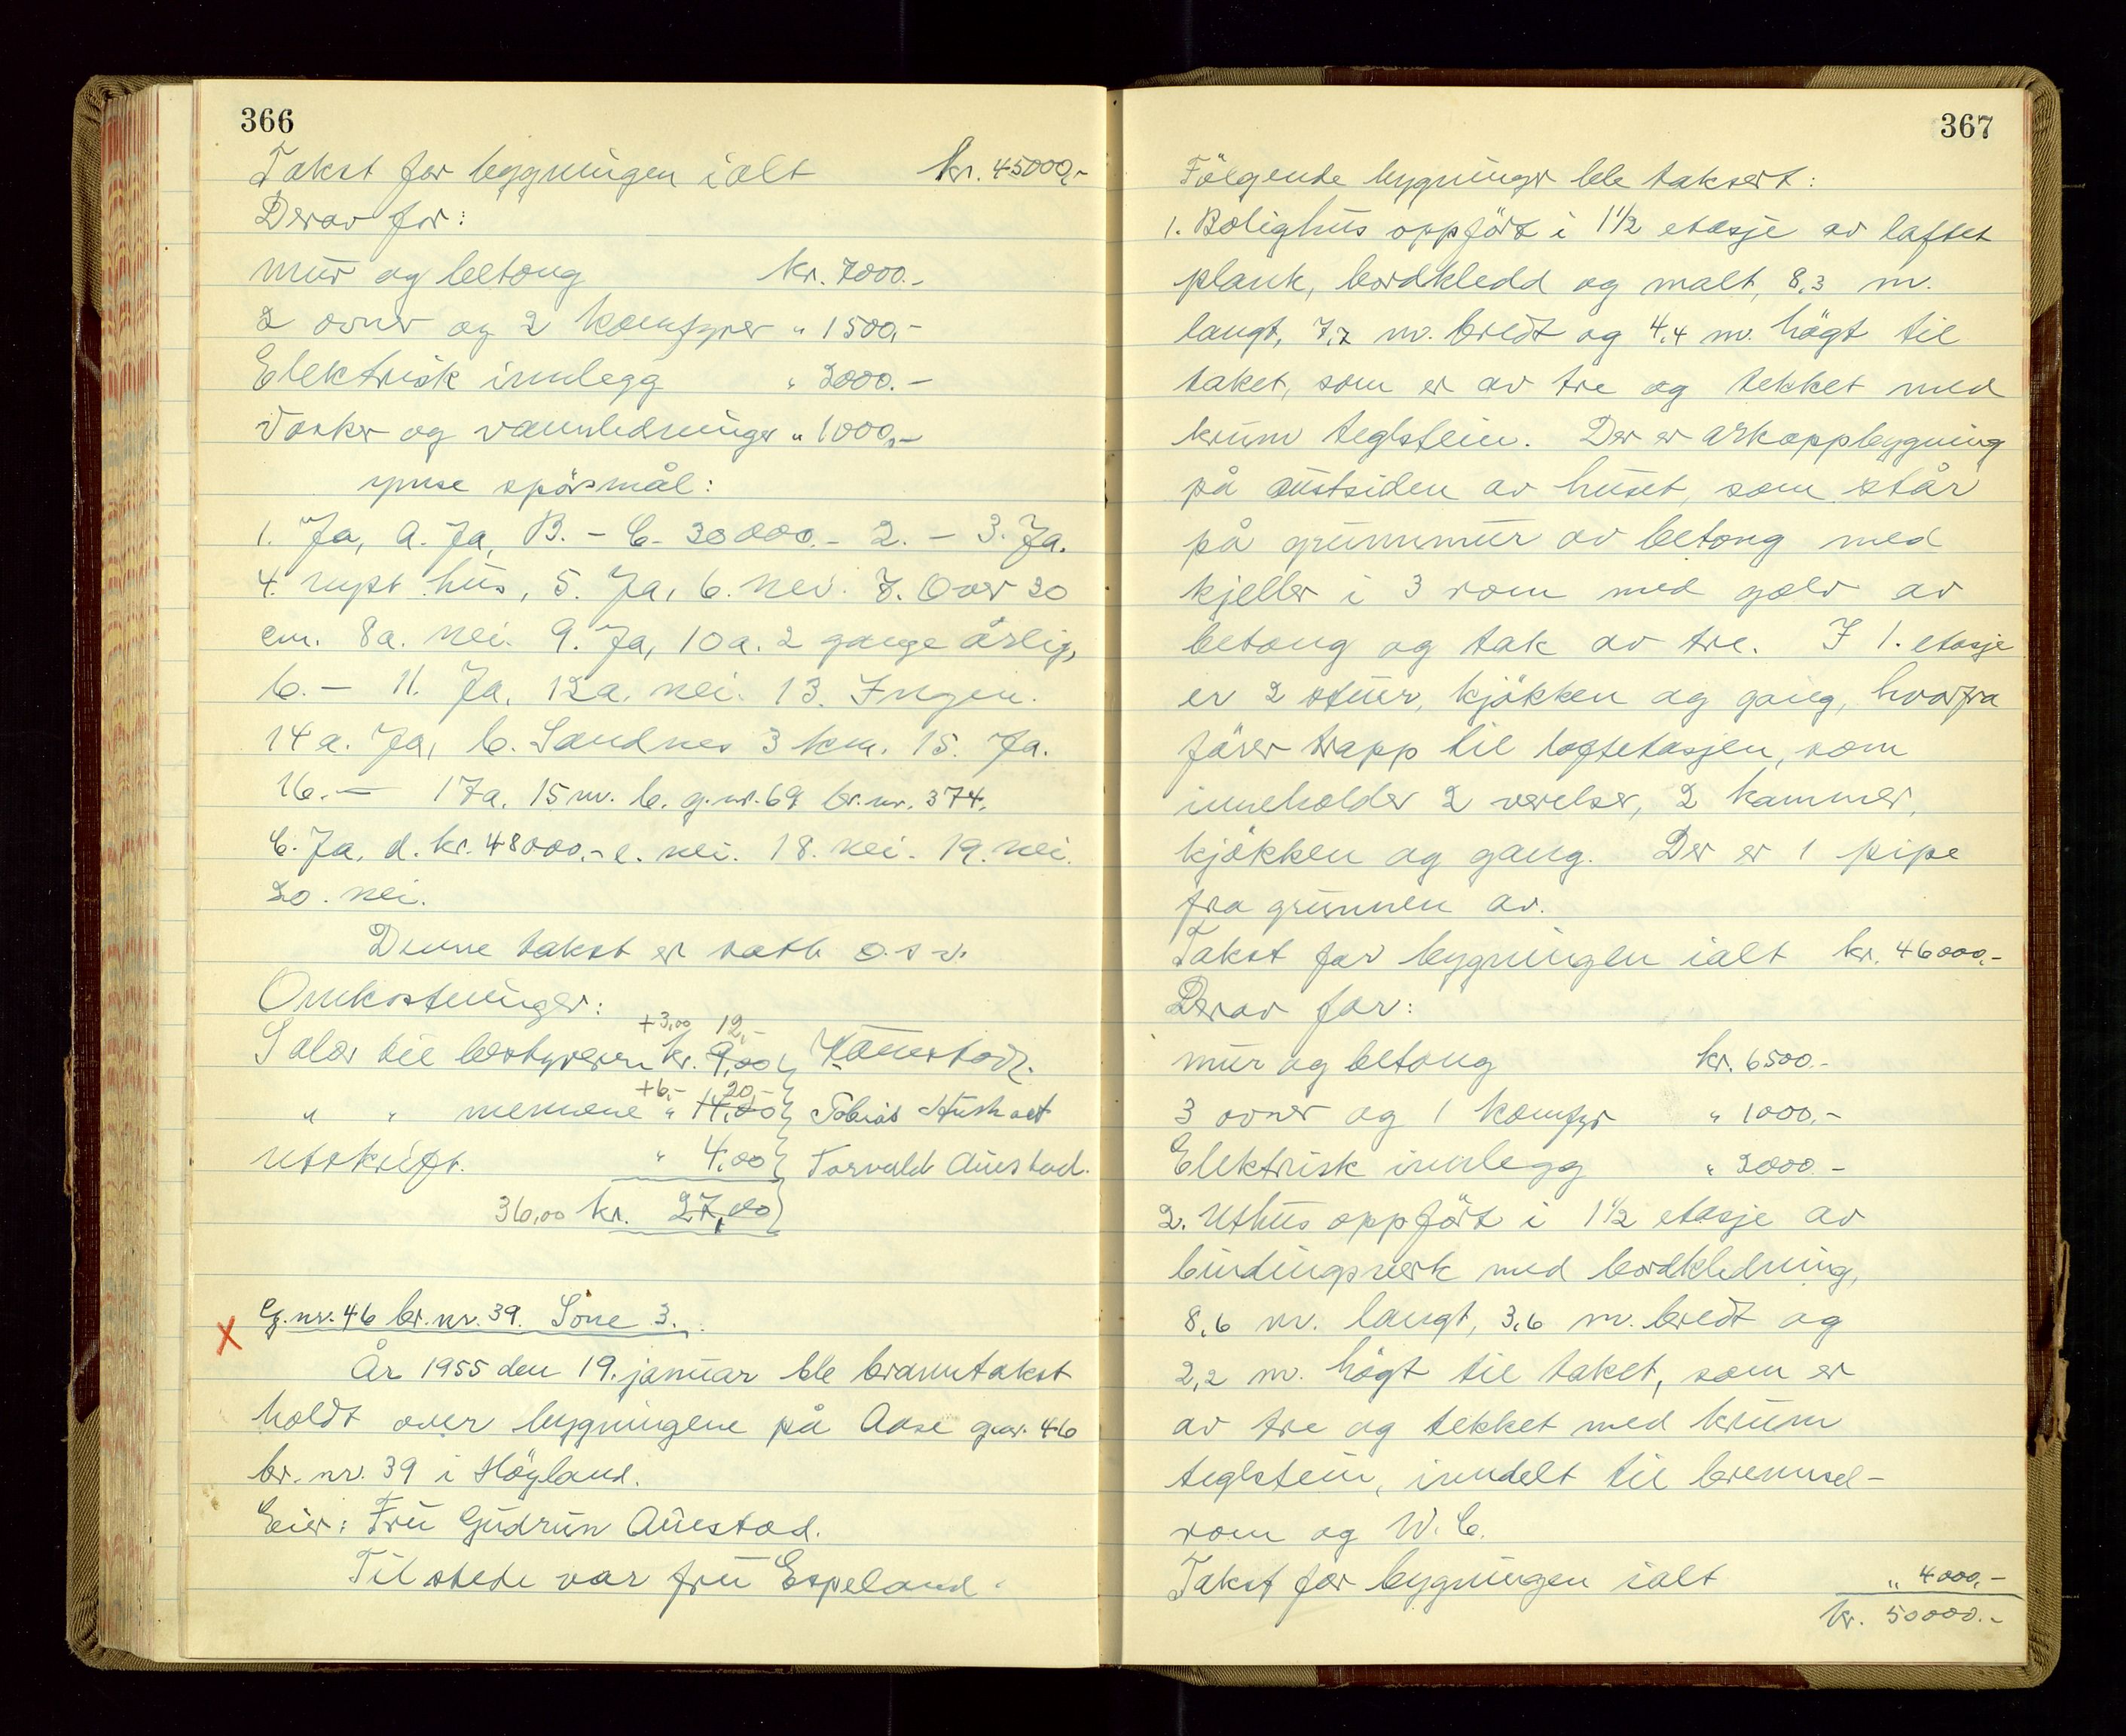 366
Takst for bygningen ialt kr. 45000,-
Derav for:
mur og betong kr. 7000.-
2 ovner og 2 komfyrer " 1500,-
Elektrisk innlegg " 2000.-
Vasker og vannledninger " 1000,-
ymse spörsmål:
1. Ja, A. Ja, B. - C. 30000.- 2. - 3. Ja.
4. nytt hus, 5. Ja, 6. nei. 7. Over 20
cm. 8a. nei. 9. Ja, 10a. 2 gange årlig,
b. - 11. Ja. 12a. nei. 13. Ingen.
14a. Ja, b. Sandnes 3 km. 15. Ja.
16. - 17a. 15 m. b. g.nr. 69 br.nr. 374.
C. Ja, d. kr. 48000.- e. nei. 18. nei. 19. nei.
20. nei.
Denne takst er satt o.s.v.
Omkostninger:
+3,00 12,-
Salær til bestyreren kr. 9,00 } K. Auestad.
+6,- 20,-
" " mennene " 14,00 } Tobias
Utskrift. " 4,00 } Torvald Auestad.
36,00 kr. 27,00 }
X G.nr. 46 br.nr. 39. Sone 3.
År 1955 den 19. januar ble branntakst
holdt over bygningene på Aase gnr. 46
br. nr. 39 i Höyland.
Eier: Fru Gudrun Auestad.
Til stede var fru Espeland.
367
Fölgende bygninger ble taksert:
1. Bolighus oppfört i 1 1/2 etasje av laftet
plank, bordkledd og malt, 8,3 m.
langt, 7,7 m. bredt og 4,4 m. högt til
taket, som er av tre og tekket med
krum teglstein. Der er arkoppbygning
på austsiden av huset, som står
på grunnmur av betong med
kjeller i 3 rom med golv av
betong og tak av tre. I 1. etasje
er 2 stuer, kjökken og gang, hvorfra
förer trapp til loftetasjen, som
inneholder 2 verelser, 2 kammer,
kjökken og gang. Der er 1 pipe
fra grunnen av.
Takst for bygningen ialt kr. 46000,-
Derav for:
mur og betong kr. 6500.-
3 ovner og 1 komfyr " 1000,-
Elektrisk innlegg " 2000.-
2. Uthus oppfört i 1 1/2 etasje av
bindingsverk med bordkledning,
8,6 m. langt, 3,6 m. bredt og
2,2 m. högt til taket, som er
av tre og tekket med krum
teglstein, inndelt til brennsel-
rom og W.C.
Takst for bygningen ialt " 4000,-
kr. 50000.-